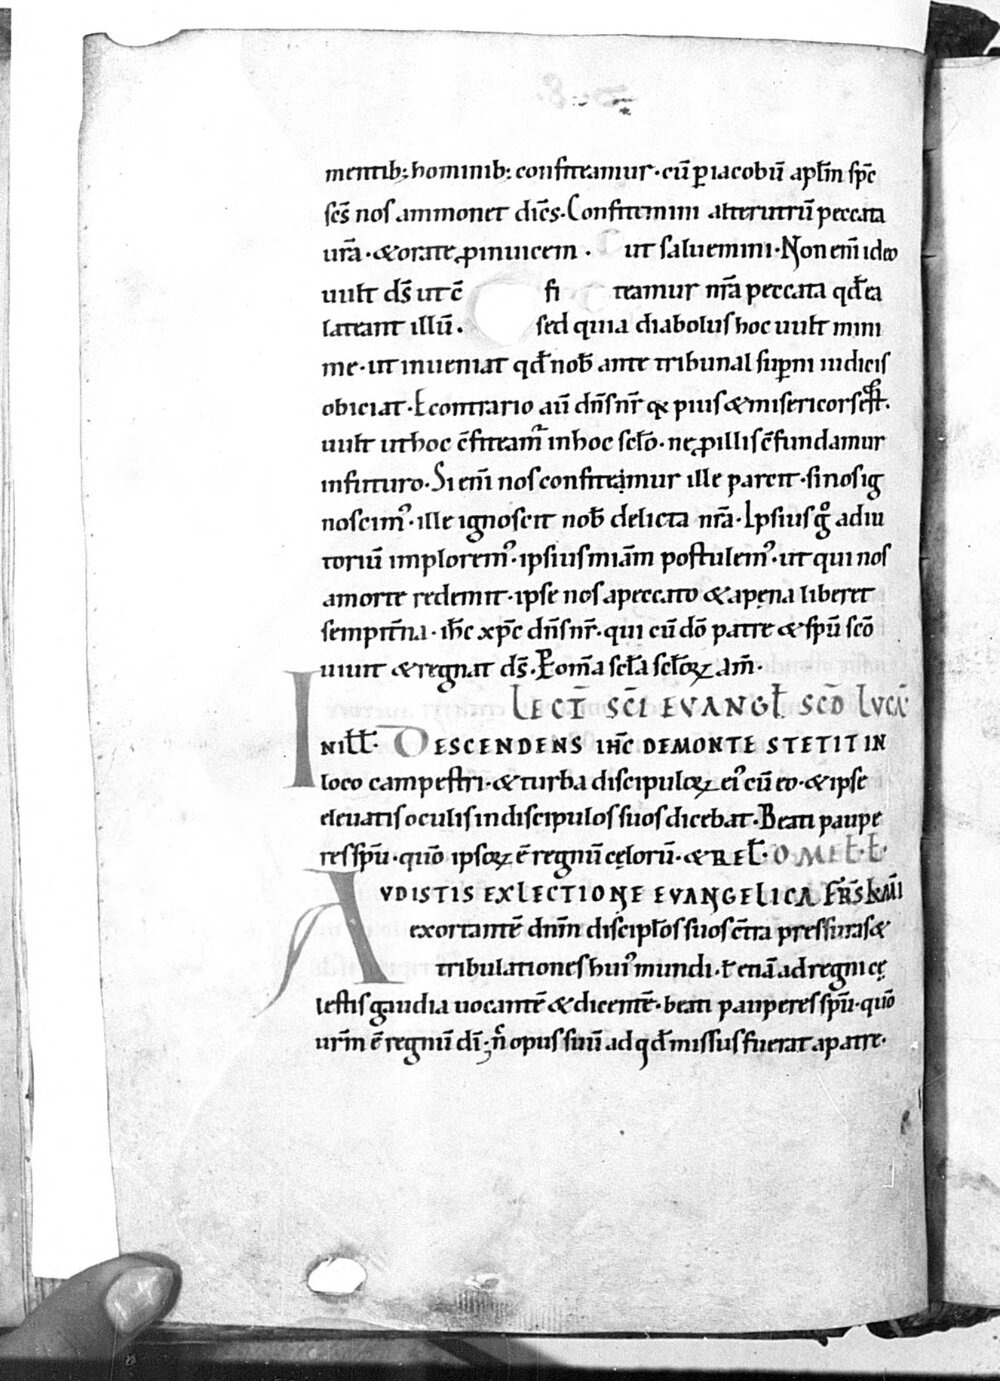 mentib; hominib; confiteamur · cū ꝑ iacobū aplm̄ sp̄c
sc̄s nos ammonet dicēs · Confitemini alterutrū peccata
ur̄a · & orate ꝓ inuicem · ut saluemini · Non enī ideo
uult ds̄ ut c̄ fi teamur nr̄a peccata qđ ea
lateant illū · sed quia diabolus hoc uult mini
me · ut inueniat qđ nob̄ ante tribunal suꝑni iudicis
obiciat · Econtrario aū dn̄s nr̄ q̄ pius & misericors est ·
uult ut hoc c̄fiteam᷑ in hoc sclo̅ · ne ꝓ illis c̄fundamur
in futuro · Si enī nos confiteamur ille parcit · si nos ig
noscim᾽ · ille ignoscit nob̄ delicta nr̄a · Ipsius gͦ adiu
toriū implorem᾽ · ipsius miām postulem᾽ · ut qui nos
a morte redemit · ipse nos a peccato & a pęna liberet
sempit̄na · ihc̄ xp̄c dn̄s nr̄ · qui cū dō patre & sp̄u scō
uiuit & regnat ds̄ · P om̄a scl̄a scl̄oꝝ am̄ ·
LECT̄ SC̄I EVANGL̄ SCD̄ LVCĀ
IN ILL̄ · DESCENDENS IHC̄ DE MONTE STETIT IN
loco campestri · & turba discipuloꝝ ei᾽ cū eo · & ipse
eleuatis oculis in discipulos suos dicebat · Beati paupe
res sp̄u · quō ipsoꝝ ē regnū cęlorū · & REL̄ · OMEL̄ · L̄ ·
AVDISTIS EX LECTIONE EVANGELICA FR̄S KMI
exortantē dn̄m discipl̄os suos c̄tra pressuras &
tribulationes hui᾽ mundi · & etiā ad regni cę
lestis gaudia uocantē & dicentē · beati pauperes sp̄u · quō
urm̄ ē regnū dī · n̄ opus suū ad qđ missus fuerat a patre ·